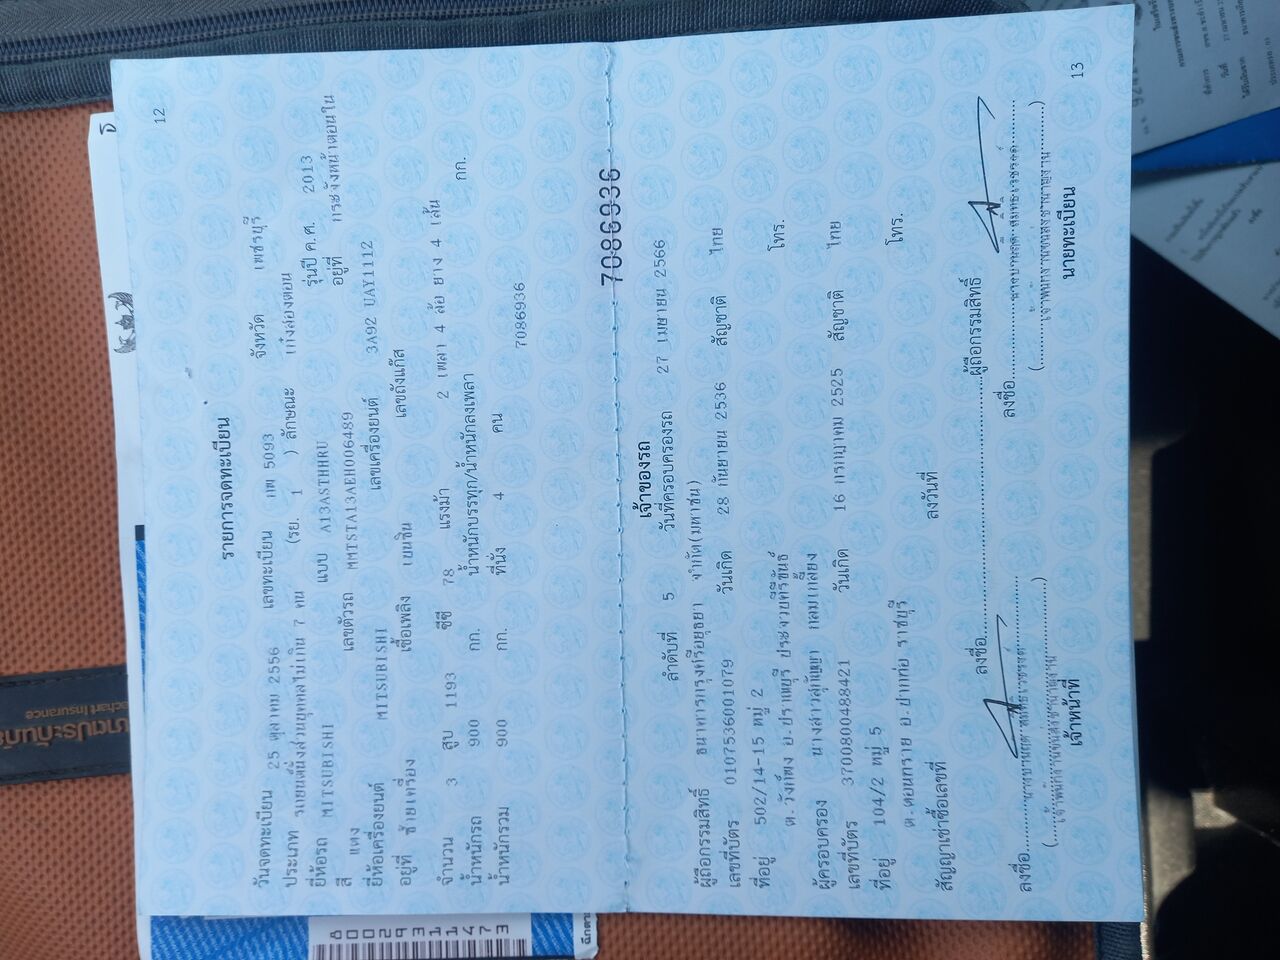 12
รายการจดทะเบียน
วันจดทะเบียน 25 ตุลาคม 2556 เลขทะเบียน กพ 5093 จังหวัด เพชรบุรี
ประเภท รถยนต์นั่งส่วนบุคคลไม่เกิน 7 คน (รย. 1 ) ลักษณะ เก๋งสองตอน
ยี่ห้อรถ MITSUBISHI แบบ A13ASTHHRU รุ่นปี ค.ศ. 2013
สี แดง เลขตัวรถ MMTSTA13AEH006489 อยู่ที่ กระจังหน้าตอนใน
ยี่ห้อเครื่องยนต์ MITSUBISHI เลขเครื่องยนต์ 3A92 UAY1112
อยู่ที่ ซ้ายเครื่อง เชื้อเพลิง เบนซิน เลขถังแก๊ส
จำนวน 3 สูบ 1193 ซีซี 78 แรงม้า 2 เพลา 4 ล้อ ยาง 4 เส้น
น้ำหนักรถ 900 กก. น้ำหนักบรรทุก/น้ำหนักลงเพลา กก.
น้ำหนักรวม 900 กก. ที่นั่ง 4 คน
7086936
7086936
เจ้าของรถ
ลำดับที่ 5 วันที่ครอบครองรถ 27 เมษายน 2566
ผู้ถือกรรมสิทธิ์ ธนาคารกรุงศรีอยุธยา จำกัด(มหาชน)
เลขที่บัตร 0107536001079 วันเกิด 28 กันยายน 2536 สัญชาติ ไทย
ที่อยู่ 502/14-15 หมู่ 2 โทร.
ต.วังก์พง อ.ปราณบุรี ประจวบคีรีขันธ์
ผู้ครอบครอง นางสาวสุกัญญา กลมเกลี้ยง
เลขที่บัตร 3700800488421 วันเกิด 16 กรกฎาคม 2525 สัญชาติ ไทย
ที่อยู่ 104/2 หมู่ 5 โทร.
ต.ดอนทราย อ.ปากท่อ ราชบุรี
สัญญาเช่าซื้อเลขที่ ลงวันที่
ลงชื่อ ผู้ถือกรรมสิทธิ์
ลงชื่อ ลงชื่อ
(เจ้าพนักงานขนส่งชำนาญงาน) (เจ้าพนักงานขนส่งชำนาญงาน)
เจ้าหน้าที่ นายทะเบียน
13
echart Insurance
8002931473